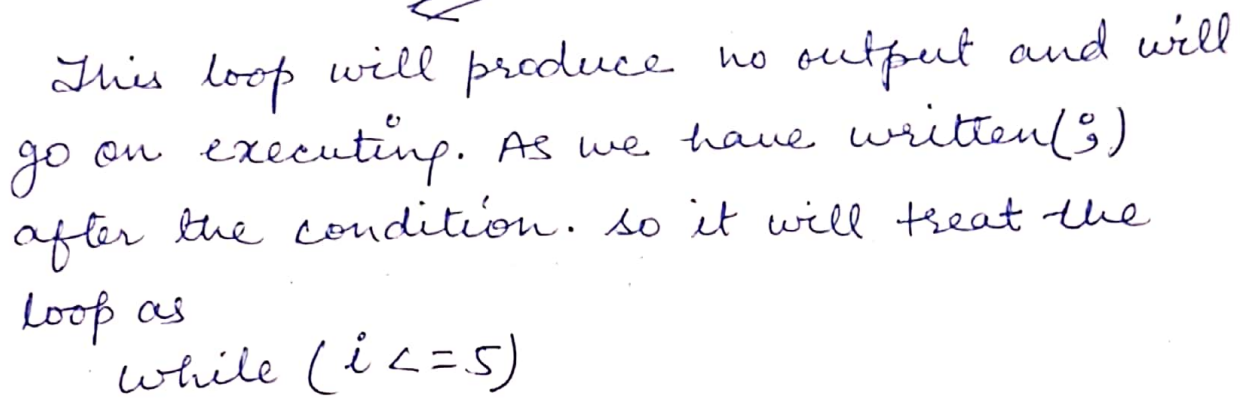 This loop will produce no output and will
go on executing. As we have written(;)
after the condition. so it will treat the
loop as
while (i <= 5)